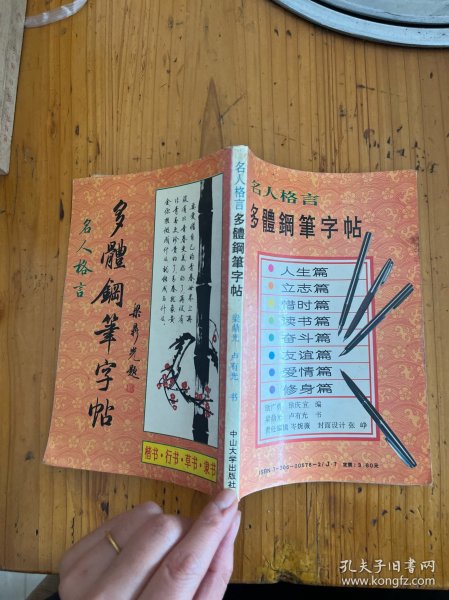 名人格言
多體鋼筆字帖
梁鼎光題
楷书·行书·草书·隶书
名人格言 多體鋼筆字帖
梁鼎光 卢有光 书
中山大学出版社
名人格言
多體鋼筆字帖
人生篇
立志篇
惜时篇
读书篇
奋斗篇
友谊篇
爱情篇
修身篇
梁鼎光 卢有光 书
责任编辑 岑婉薇 封面设计 张峥
ISBN 7-306-00676-2/J·7 定价:3.60元
孔夫子旧书网
www.kongfz.com